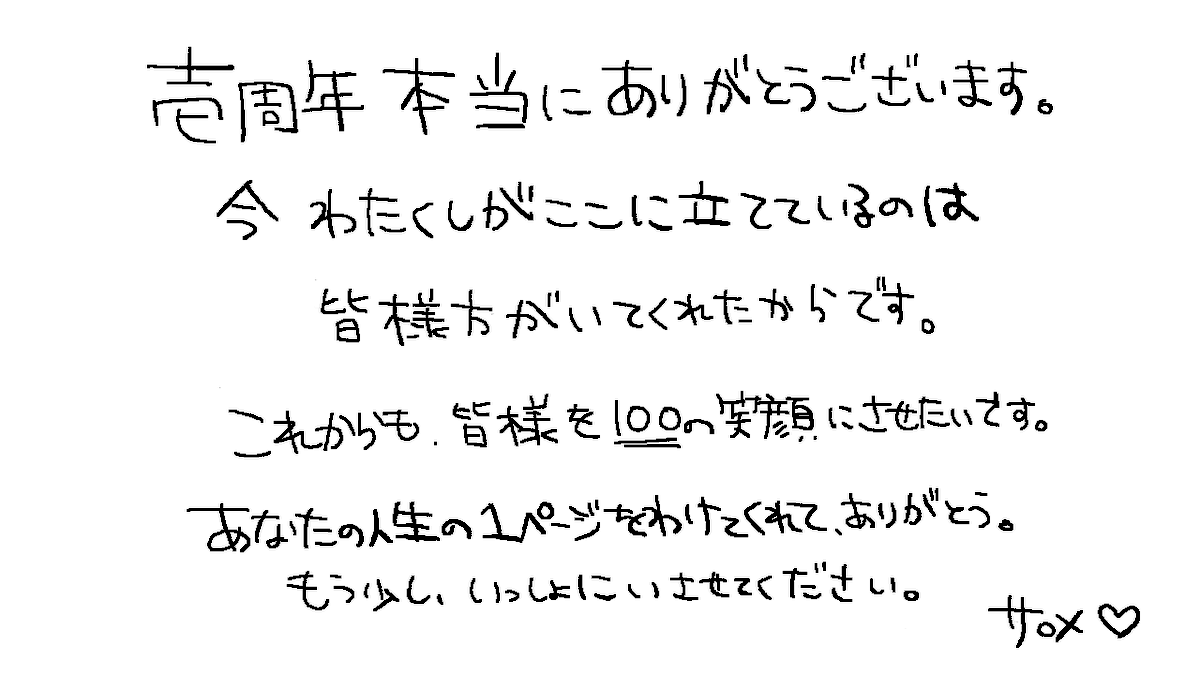 壱周年 本当にありがとうございます。
今 わたくしがここに立てているのは
皆様方がいてくれたからです。
これからも、皆様を100の笑顔にさせたいです。
あなたの人生の1ページをわけてくれて、ありがとう。
もう少し、いっしょにいさせてください。
サox♡